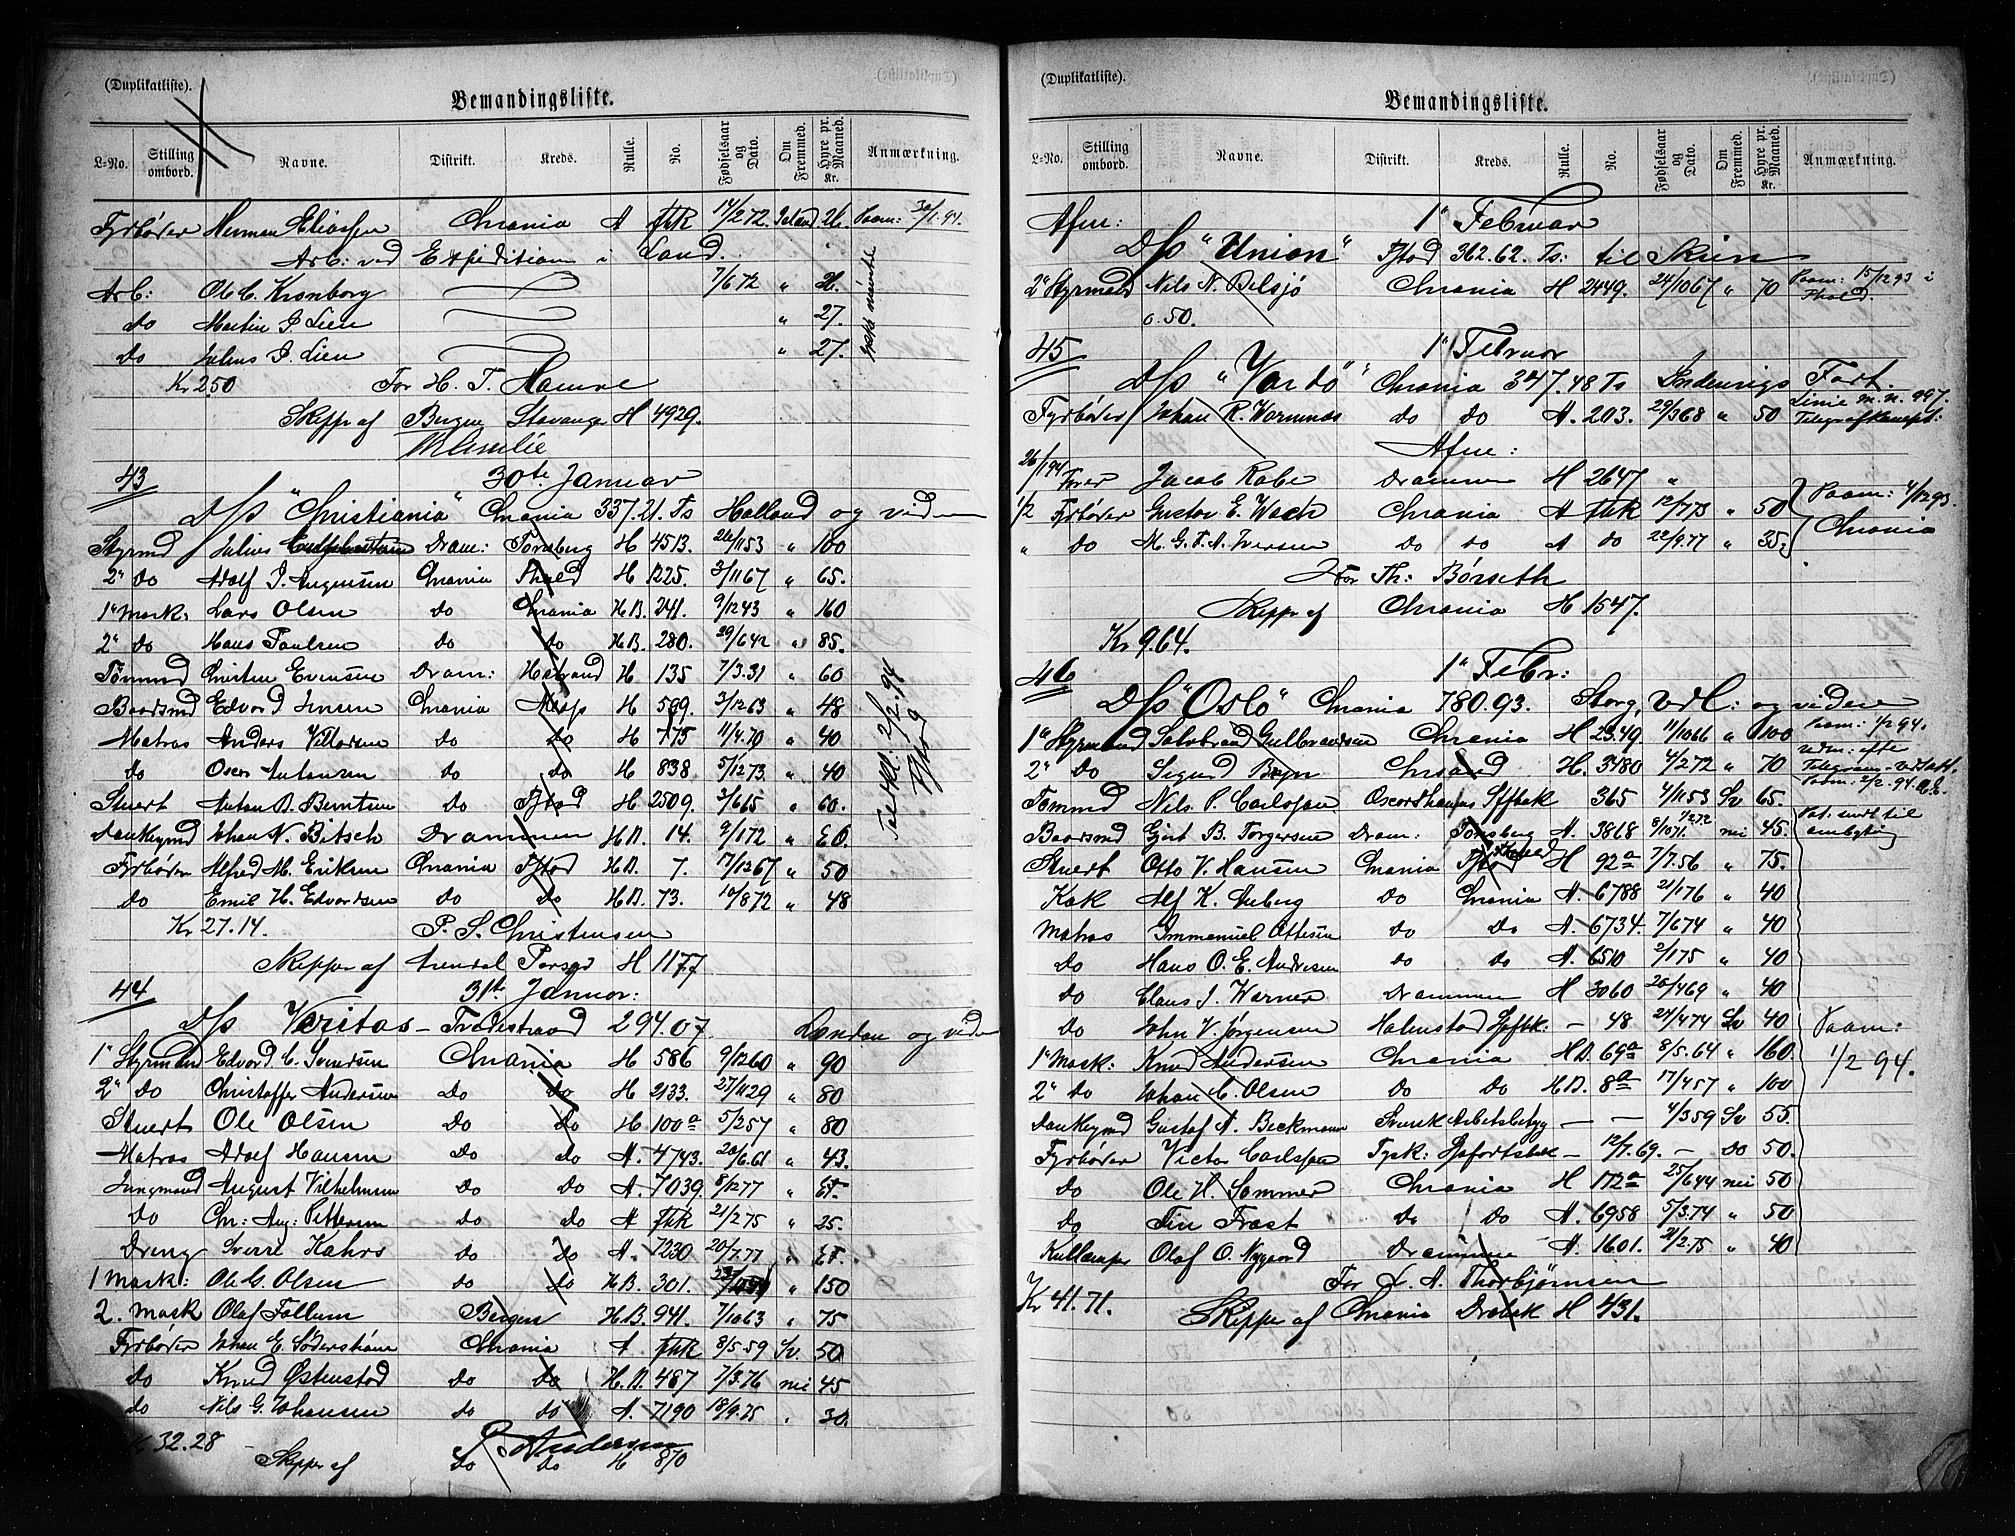 (Duplikatliste).
Bemandingsliste.
L-No. Stilling ombord. Navne. Distrikt. Kreds. Rulle. No. Fødselsaar og Dato. Om Fremmed. Hyre pr. Maaned. Kr. Anmærkning.
Fyrbøder Herman Eliassen Chrania A fhk 14/2.72 26. Paam: 30/1.94.
Arb: ved Expedition i Land.
Arb: Ole C. Kronborg 7/6 72 " 26.
do Martin J. Lien " 27.
do Julius J. Lien " 27.
Kr 2.50 For H. T. Hamre
Skipper af Bergen Stavanger H 4929.
43 30te Januar
D/s "Christiania" Chrania 337.21. Ts Holland og videre
Styrmd Julius Dram: Tønsberg H 4513. 26/11 53 " 100
2" do Adolf J. Jurgensen Chrania Fhald H 1225. 3/11 67 " 65.
1" Mask: Lars Olsen do Chrania H.B. 241. 9/12 43 " 160
2" do Hans Paulsen do do H.B. 280. 29/6 42 " 85.
Tømmd Christen Evensen Dram: H 135 7/3.31 " 60
Baadsmd Edvard Jensen Chrania Moss H 599. 3/12 63 " 48
Matros Anders Villadsen do do H 775 11/4.70 " 40
do Oscar Antonsen do do H 838 5/12 73 " 40
Stuert Anton B. Berntsen do Fstad H 2509. 3/6 65 " 60.
Donkeymd Johan N. Bitsch Drammen H.B. 14. 9/1 72 " 60.
Fyrbøder Alfred M. Eriksen Chrania Fstad H.B. 7. 17/12 67 " 50
do Emil H. Edvardsen do do H.B. 73. 10/8 72 " 48
Kr 27.14. P. S. Christensen
Skipper af Arendal Porsgr H 1177
44 31te Januar:
D/s Veritas - Tvedestrand 294.07 London og videre
1" Styrmand Edvard C. Svendsen Chrania H 586 9/12 60 " 90
2" do Christoffer Andersen do do H 2133. 27/11 29 " 80
Stuert Ole Olsen do do H 100a 5/2 57 " 80
Matros Adolf Hansen do do A. 4743. 20/6.61 " 43.
Jungmand August Vilhelmsen do do A. 7039. 8/12 77 "
do Chr: Aug: Pettersen do do A fhk 21/2 75 " 25.
Dreng Sverre Kahrs do do A. 7230 20/7.77 "
1 Mask: Ole G. Olsen do do H.B. 301. " 150
2. Mask Olaf Follum Bergen H.B. 941. 7/10 63 " 75
Fyrbøder Johan E. Söderström Chrania A fhk 8/5.59 Sv. 50
do Knud Østenstad do do H.B. 487 7/3.76 nei 45
do Nils G. Johansen do do A. 7190 18/9.75 " 30.
32.28 Andersen
Skipper af do do H 870
(Duplikatliste).
Bemandingsliste.
L-No. Stilling ombord. Navne. Distrikt. Kreds. Rulle. No. Fødselsaar og Dato. Om Fremmed. Hyre pr. Maaned. Kr. Anmærkning.
Afm: 1" Februar
D/s "Union" Fstad 362.62. Ts: til Skien
2" Styrmand Nils N. Pilsjø Chrania H 2449. 24/10 67 " 70 Paam: 15/12 93 i Fhald.
o. 50.
45 1" Februar
D/s "Vardø" Chrania 347.48 Ts Indenrigs Fart.
Fyrbøder Johan R. Warnnæs do do A. 203. 29/3 68 " 50 Linie m. n. 997. Telegrafkompt:
26/1 94 Afm:
Fører Jacob Rabe Drammen H 2647 "
1/2 Fyrbøder Gustav E. Wack Chrania A fhk 12/7 73 " 50 Paam: 4/12 93.
" do M. G. F. A. Iversen do do A do 22/9.77 " 35. Chrania
For Th: Børseth
Skipper af Chrania H 1547.
Kr 9.64.
46 1" Febr:
D/s "Oslo" Chrania 780.93. Storg, Vdl: og videre
1" Styrmand Salvbrand Gulbrandsen Chrania H 2349. 11/10 66 " 100 Paam: 1/2 94.
2" do Sigurd Bryn Chrsand H. 3480 4/2 72 " 70 Paam: 2/2.94.
Tømmd Nils P. Carlsson Oscarshamns Sjfbok 365 4/11 53 Sv 65.
Baadsmd Gjert B. Torgersen Dram: Tønsberg A. 3868 8/10 71. nei 45.
Stuert Otto V. Hansen Chrania Fhald H 92a 7/7.56 " 75.
Kok Alf K. Auberg do Chrania A. 6788 21/1 76 " 40
Matros Immanuel Ottesen do do A. 6734. 7/6 74 " 40
do Hans O. E. Andersen do do A. 6510 2/1 75 " 40
do Claus J. Warner Drammen H 3060 20/4 69 " 40
do John V. Jørgensen Halmstad Sjfbk: - 48 24/4 74 Sv 40 Paam:
1" Mask: Knud Andersen Chrania H.B. 69a 8/5.64 " 160 1/2 94.
2" do Johan C. Olsen do do H.B. 8a 17/4 57 " 100
Donkeymd Gustaf A. Beckmann Svensk Arbetsbetyg - - 4/3 59 Sv 55.
Fyrbøder Victor Carlsson Tysk: Sjøfartsbok - 12/7.69. - do 50.
do Ole H. Sommer Chrania H 172a 25/6 44 nei 50
do Finn Frost do do A. 6958 5/3.74 " 50
Kullemper Olaf O. Nygaard Drammen A. 1601. 2/2.75 " 40
For L. A. Thorbjørnsen
Kr 41.71. Skipper af Chrania Drøbak H 431.